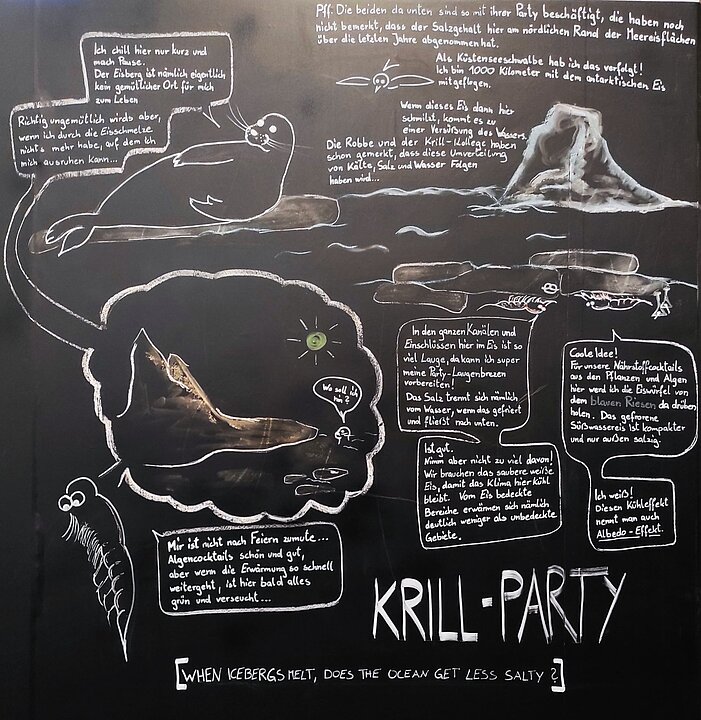 Pff! Die beiden da unten sind so mit ihrer Party beschäftigt, die haben noch
nicht bemerkt, dass der Salzgehalt hier am nördlichen Rand der Meereisflächen
über die letzten Jahre abgenommen hat.
Als Küstenseeschwalbe hab ich das verfolgt!
Ich bin 1000 Kilometer mit dem antarktischen Eis
mitgeflogen.
Wenn dieses Eis dann hier
schmilzt, kommt es zu
einer Versüßung des Wassers.
Die Robbe und der Krill-Kollege haben
schon gemerkt, dass diese Umverteilung
von Kälte, Salz und Wasser Folgen
haben wird...
Ich chill hier nur kurz und
mach Pause.
Der Eisberg ist nämlich eigentlich
kein gemütlicher Ort für mich
zum Leben
Richtig ungemütlich wirds aber,
wenn ich durch die Eisschmelze
nichts mehr habe, auf dem ich
mich ausruhen kann...
Wo soll ich
hin?
In den ganzen Kanälen und
Einschlüssen hier im Eis ist so
viel Lauge, da kann ich super
meine Party-Laugenbrezen
vorbereiten!
Das Salz trennt sich nämlich
vom Wasser, wenn das gefriert
und fließt nach unten.
Ist gut.
Nimm aber nicht zu viel davon!
Wir brauchen das saubere weiße
Eis, damit das Klima hier kühl
bleibt. Vom Eis bedeckte
Bereiche erwärmen sich nämlich
deutlich weniger als unbedeckte
Gebiete.
Coole Idee!
Für unsere Nährstoffcocktails
aus den Pflanzen und Algen
hier werd ich die Eiswürfel von
dem blauen Riesen da drüben
holen. Das gefrorene
Süßwassereis ist kompakter
und nur außen salzig.
Ich weiß!
Diesen Kühleffekt
nennt man auch
Albedo-Effekt.
Mir ist nicht nach Feiern zumute...
Algencocktails schön und gut,
aber wenn die Erwärmung so schnell
weitergeht, ist hier bald alles
grün und verseucht...
KRILL-PARTY
[WHEN ICEBERGS MELT, DOES THE OCEAN GET LESS SALTY?]